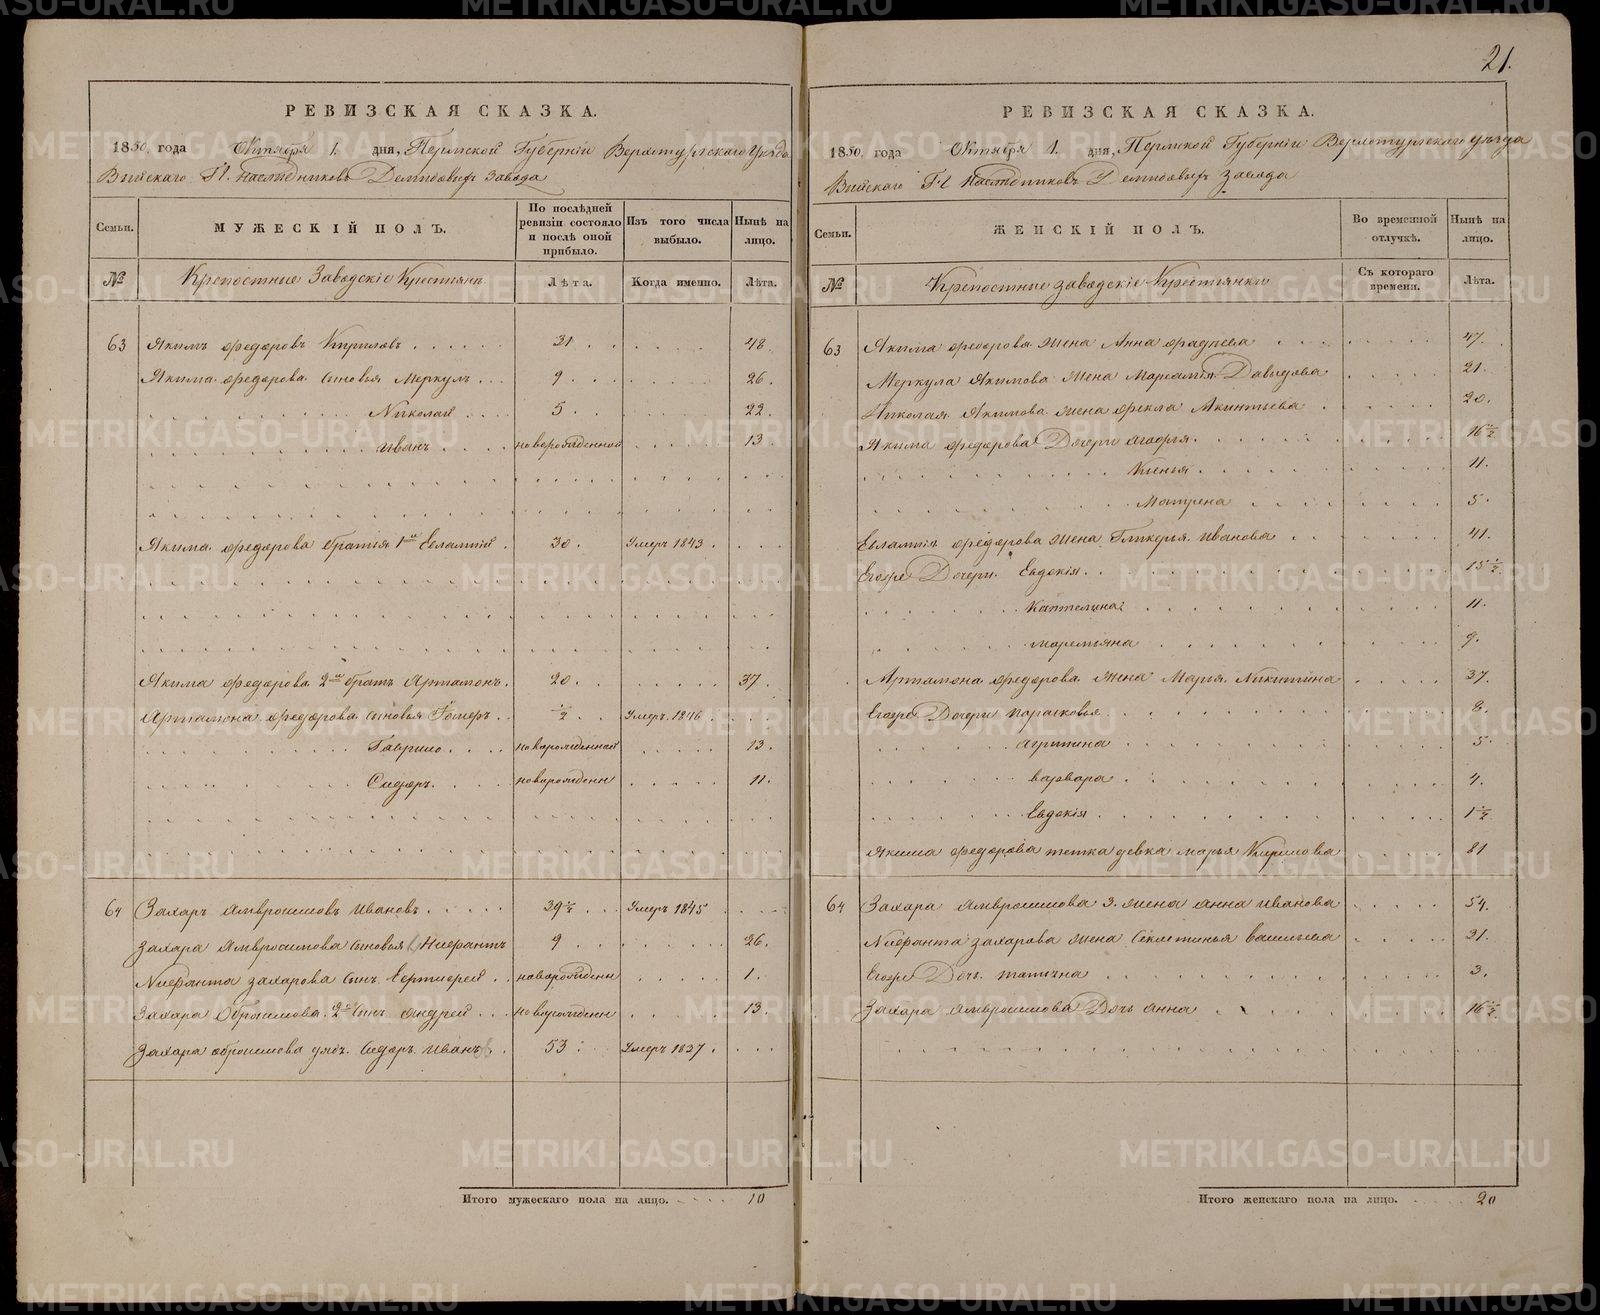 21.
РЕВИЗСКАЯ СКАЗКА.
1850 года Октября 1 дня, Пермской Губерніи Верхотурскаго Уезда
Выйскаго Гг. Наследниковъ Демидовыхъ Завода
Семьи. МУЖЕСКІЙ ПОЛЪ. По послѣдней ревизіи состояло и послѣ оной прибыло. Изъ того числа выбыло. Нынѣ на лицо.
№ Крепостные Заводскіе Крестьяне Лѣта. Когда именно. Лѣта.
63 Якимъ Федоровъ Кириловъ 31 48
Якима Федорова сыновья Меркулъ 9 26.
Николай 5 22
Иванъ новорожденной 13
Якима Федорова братья 1й Евлампій 30 Умеръ 1843
Якима Федорова 2й братъ Артамонъ 20 37
Артамона Федорова сыновья ½ Умеръ 1846
Гаврило новорожденной 13.
Сидоръ новорожденн 11.
64 Захаръ Амвросимовъ Ивановъ 39½ Умеръ 1845
Захара Амвросимова сыновья Нифантъ 9 26.
Нифанта Захарова сынъ новорожденн 1.
Захара Обросимова 2й сынъ Андрей новорожденн 13.
Захара Обросимова дядя Сидоръ Иванъ 53 Умеръ 1837
Итого мужескаго пола на лицо. 10
РЕВИЗСКАЯ СКАЗКА.
1850 года Октября 1 дня, Пермской Губерніи Верхотурскаго уезда
Выйскаго Гг. Наследниковъ Демидовыхъ Завода
Семьи. ЖЕНСКІЙ ПОЛЪ. Во временной отлучкѣ. Нынѣ на лицо.
№ Крепостные заводскіе Крестьянки Съ котораго времени. Лѣта.
63 Якима Федорова жена Анна Фадеева 47.
Меркула Якимова жена Давыдова 21.
Николая Якимова жена Фекла Акинтьева 20.
Якима Федорова Дочери 16½
Ксенья 11.
Матрена 5.
Евлампія Федорова жена Гликерья Иванова 41.
Егоже Дочери Евдокія 15½
Каптелина 11.
Маремьяна 9.
Артамона Федорова жена Марья Никитина 37.
Егоже Дочери Парасковья 8.
Агрипина 5.
Варвара 4.
Евдокія 1½
Якима Федорова тетка девка Марья Кирилова 81
64 Захара Амвросимова 3. жена Анна Иванова 54.
Нифанта Захарова жена Секлетинья Васильева 21.
Егоже Дочь Татьяна 3.
Захара Амвросимова Дочь Анна 16½
Итого женскаго пола на лицо. 20
METRIKI.GASO-URAL.RU